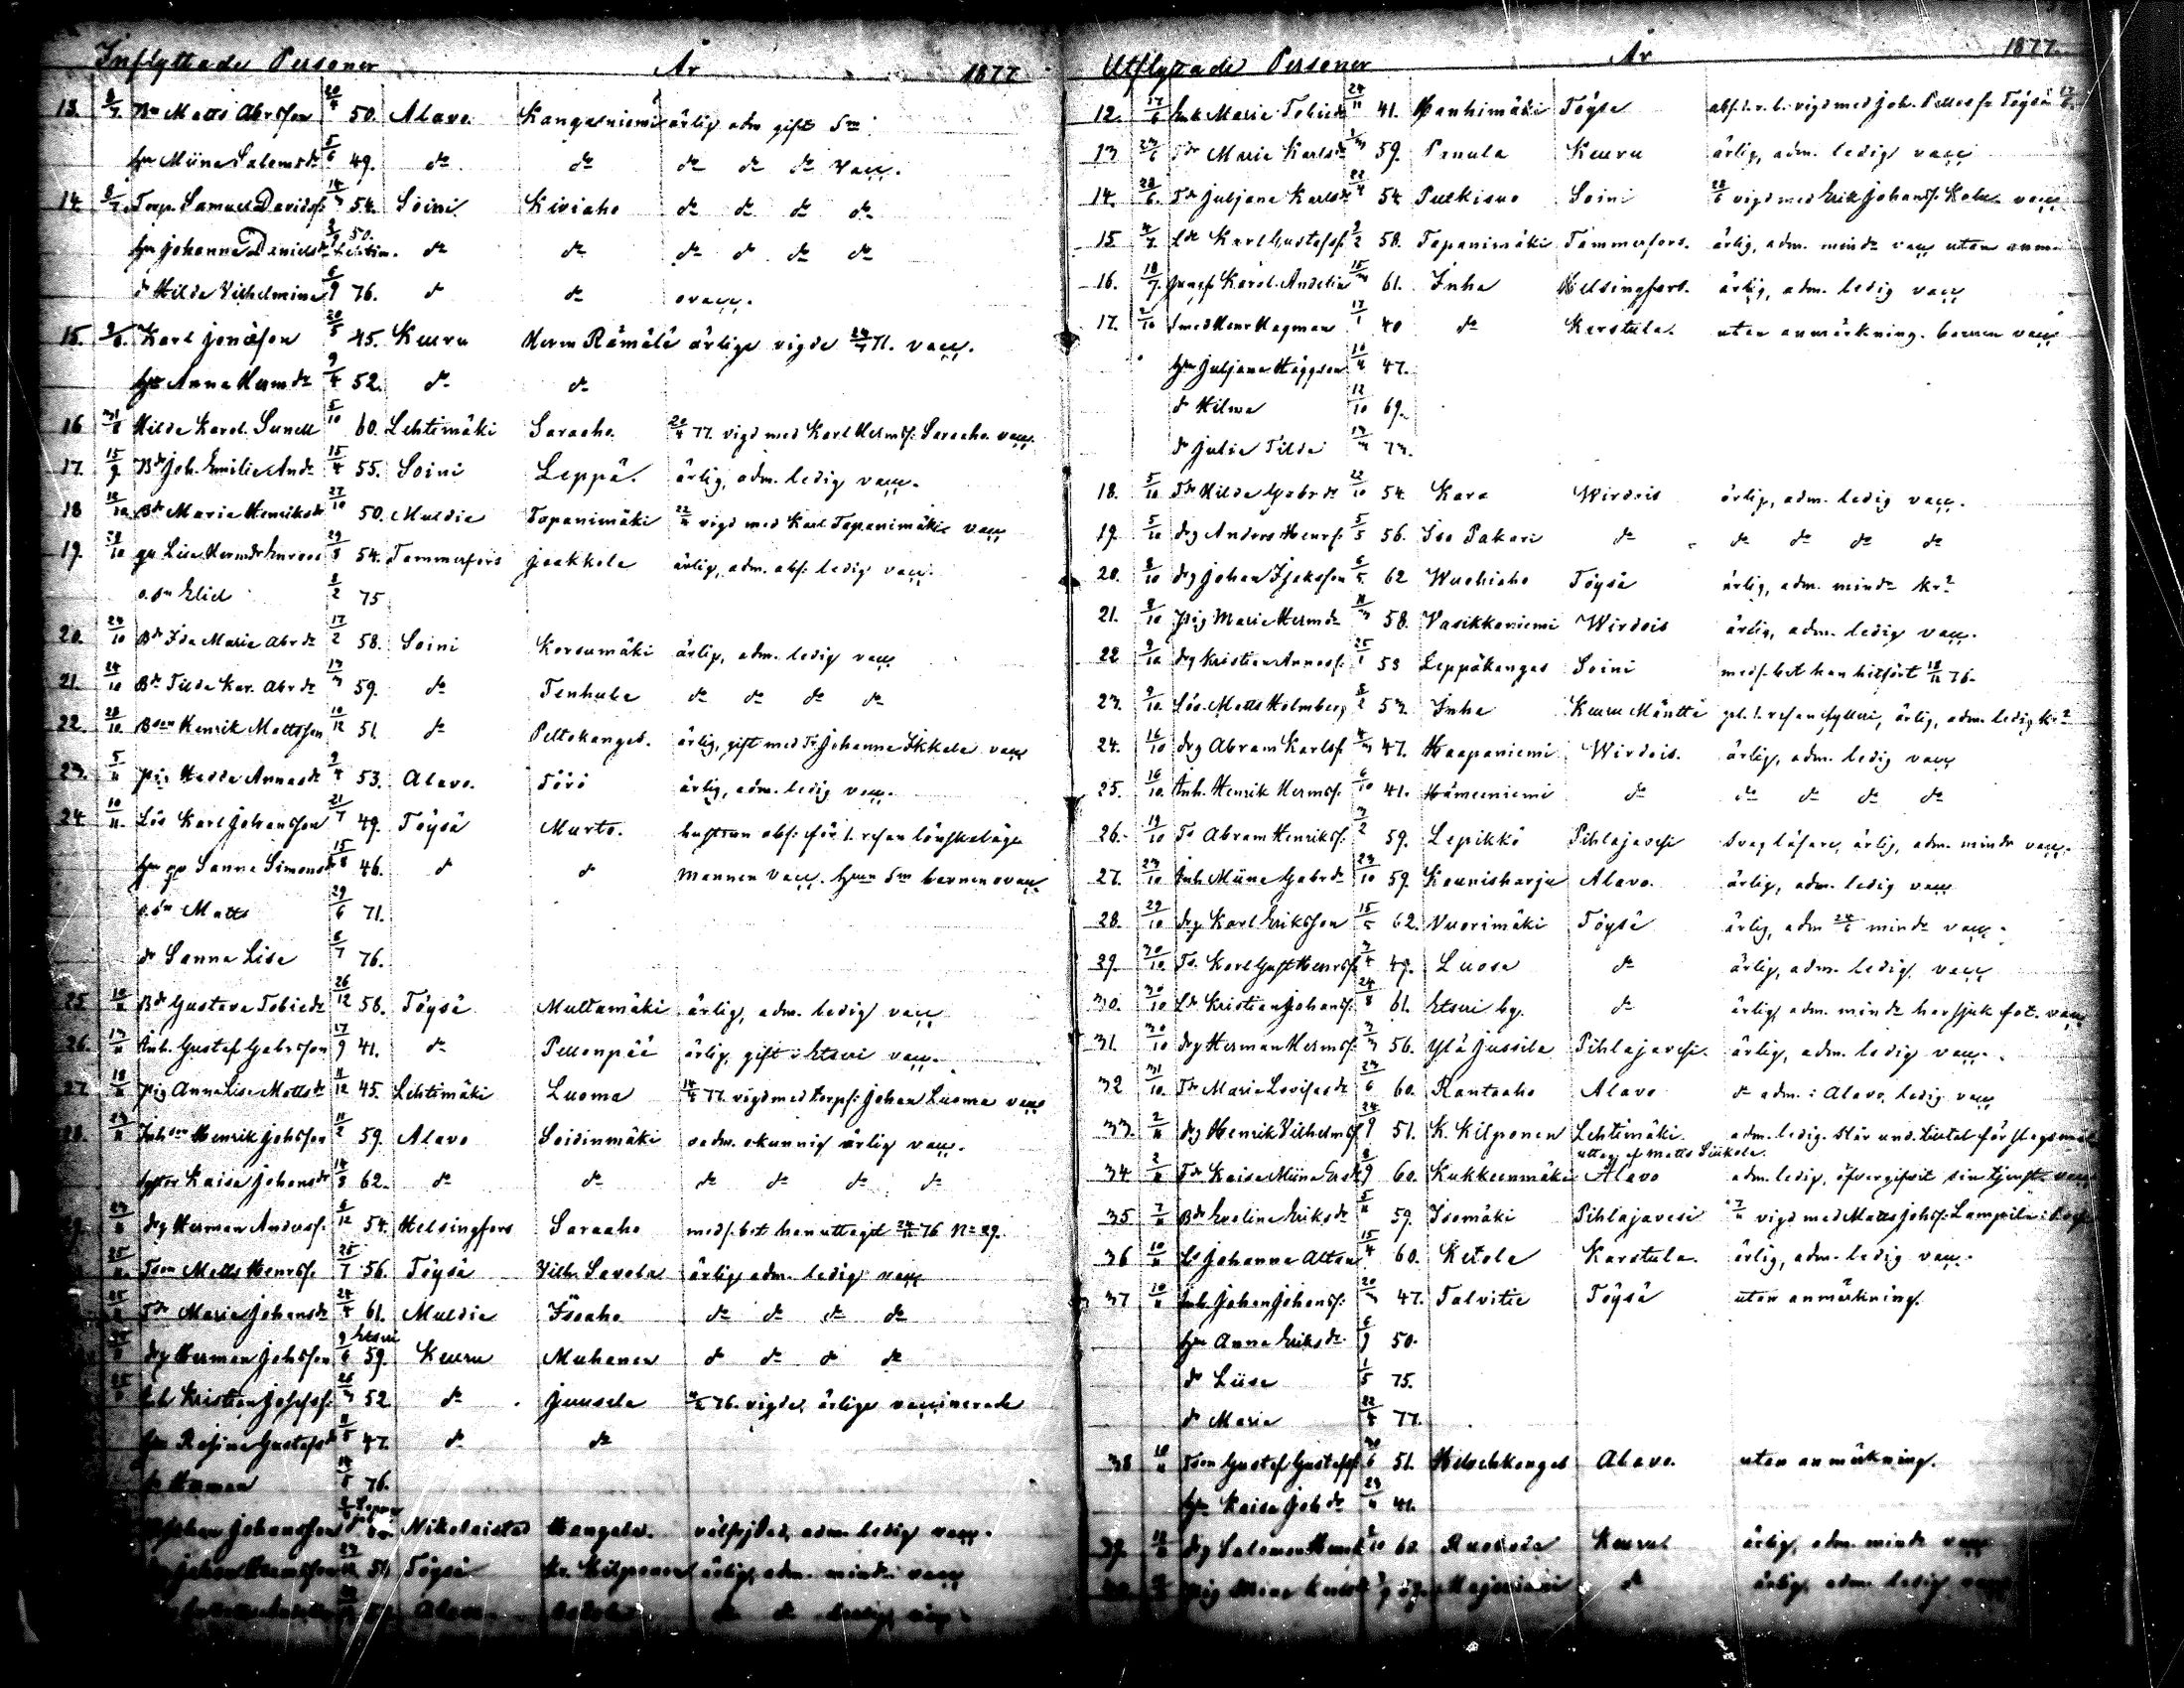 Inflyttade Personer År 1877
13. 8/7 Bn Matts Abrsson 20/4 50. Alavo Kangasniemi ärlig adm gift Sm
hu Miina Salomsdr 5/6 49. do do do do do vacc.
14. 8/7 Torp. Samuel Davidss: 14/3 54. Soini Kiviaho do do do do
hu Johanna Danielsdr 50. do do do do do do
dr Hilda Vilhelmina 6/9 76. do do ovacc.
15. Karl Jonasson 20/5 45. Keuru Herm Rämälä ärliga vigde 71. vacc.
hu Anna Hermdr 9/4 52. do do
16 31/8 Hilda Karol. Sunell 5/10 60. Lehtimäki Saraaho. 77. vigd med Karl Hermss: Saraaho. vacc.
17. 15/9 Bdr Joh. Emilia Andr 15/4 55. Soini Leppä. ärlig, adm. ledig vacc.
18 Bdr Maria Henriksdr 27/10 50. Muldia Tapanimäki 22/4 vigd med Karl Tapanimäki vacc
19. 29/10 Lisa Hermdr 29/8 54. Tammerfors Jaakkola ärlig, adm. abs. ledig vacc.
o.sn Eliel 2/2 75
20. 24/10 Bdr Ida Maria Abrdr 17/2 58. Soini Korsumäki ärlig, adm. ledig vacc
21. 24/10 Bdr Tilda Kar. Abrdr 59. do Tenhula do do do do
22. 28/10 Bson Henrik Mattsson 10/12 51. do Peltokangas. ärlig, gift med Johanna Ikkala vacc
23. 5/11 pig Hedda Annasdr 9/4 53. Alavo. Törö ärlig, adm. ledig vacc.
24. 10/11 Lös Karl Johansson 21/7 49. Töysä Murto. hustrun abs: för 1. resan lönskaläge
hu Sanna Simonsdr 15/8 46. do do Mannen vacc. hun Sm barnen ovacc
o.sn Matts 29/6 71.
dr Sanna Lisa 6/7 76.
25. 10/11 Bdr Gustava Tobiedr 26/12 58. Töysä Multamäki ärlig, adm. ledig vacc
26. 13/11 Inh. Gustaf Gabrsson 17/9 41. do Pellonpää ärlig, gift i Etseri vacc.
27. 18/11 pig Anna Lisa Mattsdr 11/12 45. Lehtimäki Luoma 77. vigd med torps: Johan Luoma vacc
28. 23/11 Inhson Henrik Johsson 11/2 59. Alavo Soidinmäki oadm. okunnig ärlig vacc.
Kaisa Johansdr 14/8 62. do do do do do do
29. 23/11 drg Herman Anderss: 54. Helsingfors Saraaho meds. bet han uttagit 76 No 29.
25/11 Tson Matts Henrss: 25/7 56. Töysä Vilh. Savola ärlig adm. ledig vacc
25/11 Tdr Maria Johansdr 24/4 61. Muldia Isoaho do do do do
drg Herman Johsson 9/6 Etseri 59. Keuru Muhonen do do do do
25/11 Inh Kristian Josefss: 52 do Juusela 76. vigde, ärliga vaccinerade
hu Rosina Gustafsdr 11/5 47. do do
s Herman 14/5 76.
Johan Johansson Nikolaistad Hangala. välfrejdad, adm. ledig vacc.
Johan Hermsson 51. Töysä Kr. Kilponen ärlig, adm. mindr vacc
Alavo do do ledig vacc.
Utflyttade Personer År 1877.
12. 17/6 Enk Maria Tobiedr 24/11 41. Hanhimäki Töysä abs. l. r. l. vigd med Joh.
13 23/6 Tdr Maria Karlsdr 59. Panula Keuru ärlig, adm. ledig vacc
14. 28/6 Tdr Juljana Karlsdr 22/4 54 Pulkisuo Soini 28/6 vigd med Erik Johanss: vacc
15 4/7 Karl Gustafss: 3/2 58. Tapanimäki Tammerfors. ärlig, adm. mindr vacc utan anm
16. 18/7 Karol. Andelin 15/3 61. Inha Helsingfors. ärlig, adm. ledig vacc
17. 2/10 Smed Henr Hagman 17/1 40 do Karstula. utan anmärkning. barnen vacc
hu Juljana Häggson 10/4 47.
dr Hilma 12/10 69.
dr Julia Tilda 73.
18. 5/10 Tdr Hilda Gabrdr 22/10 54 Kara Wirdois ärlig, adm. ledig vacc.
19. 5/10 drg Anders Henrss: 5/5 56. Iso Pakari do do do do do
20. 8/10 drg Johan Isaksson 6/5 62 Wuohiaho Töysä ärlig, adm. mindr kr?
21. 8/10 pig Maria Hermdr 11/3 58. Vasikkaniemi Wirdois ärlig, adm. ledig vacc.
22 9/10 drg Kristian Annass: 25/1 53 Leppäkangas Soini meds. bet han hitfört 76.
23. 9/10 Lös. Matts Holmberg 8/2 53. Inha Keuru Mänttä pl. 1. resan fylleri, ärlig, adm. ledig kr?
24. 16/10 drg Abram Karlss: 4/3 47. Haapaniemi Wirdois. ärlig, adm. ledig vacc
25. 16/10 Inh. Henrik Hermss: 6/10 41. Hämeeniemi do do do do do
26. 19/10 Ts Abram Henrikss: 3/2 59. Lepikkö Pihlajavesi svag läsare, ärlig, adm. mindr vacc.
27. 23/10 Inh Miina Gabrdr 23/10 59. Kaunisharju Alavo. ärlig, adm. ledig vacc
28. 29/10 drg Karl Eriksson 15/5 62. Vuorimäki Töysä ärlig, adm 24/6 mindr vacc.
29. 30/10 Ts. Karl Gust Henrss: 3/4 47. Luosa do ärlig, adm. ledig. vacc
30. 30/10 Kristian Johanss: 24/8 61. Etseri by. do ärlig adm. mindr har sjuk fot. vacc
31. 30/10 drg Herman Hermss: 3/3 56. Ylä Jussila Pihlajavesi. ärlig, adm. ledig vacc.
32 31/10 Tdr Maria Lovisasdr 23/6 60. Rantaaho Alavo do adm. i Alavo, ledig vacc
33. 2/11 drg Henrik Vilhelmss: 24/9 51. K. Kilponen Lehtimäki. adm. ledig. Står und. tilltal för slagsmål
uttag. af Matts Siikola.
34. 2/11 Tdr Kaisa Miina 8/9 60. Kukkeenmäki Alavo adm. ledig, öfvergifvit sin tjenst vacc
35 7/11 Bdr Evelina Eriksdr 5/11 59. Isomäki Pihlajavesi vigd med Matts Johss: Lampila i
36 10/11 Johanna Altan 15/4 60. Ketola Karstula. ärlig, adm. ledig vacc.
37 10/11 Inh. Johan Johanss: 20/3 47. Talvitie Töysä utan anmärkning.
hu Anna Eriksdr 6/9 50.
dr Liisa 1/5 75.
dr Maria 22/4 77.
38 10/11 Tson Gustaf Gustafss: 51. Alavo. utan anmärkning.
hu Kaisa Johdr 41.
39. drg Salomon 60. Keuru ärlig, adm. mindr vacc
pig do ärlig, adm. ledig